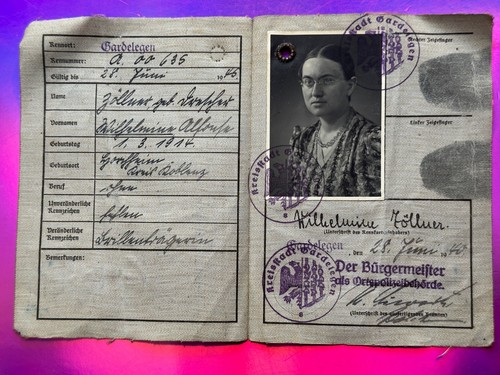 Kennort: Gardelegen
Kennummer: A. 00 635
Gültig bis 28. Juni 1945
Name Zöllner geb. Drescher
Vornamen Wilhelmine
Geburtstag 1. 3. 1914.
Geburtsort
Kreis Koblenz
Beruf ohne
Unveränderliche
Kennzeichen fehlen
Veränderliche
Kennzeichen Brillenträgerin
Bemerkungen:
Kreisstadt Gardelegen
Rechter Zeigefinger
Linker Zeigefinger
Kreisstadt Gardelegen
6
Wilhelmine Zöllner.
(Unterschrift des Kennkarteninhabers)
Gardelegen, den 28. Juni 1940
Kreisstadt Gardelegen
6
Der Bürgermeister
als Ortspolizeibehörde.
(Unterschrift des ausfertigenden Beamten)